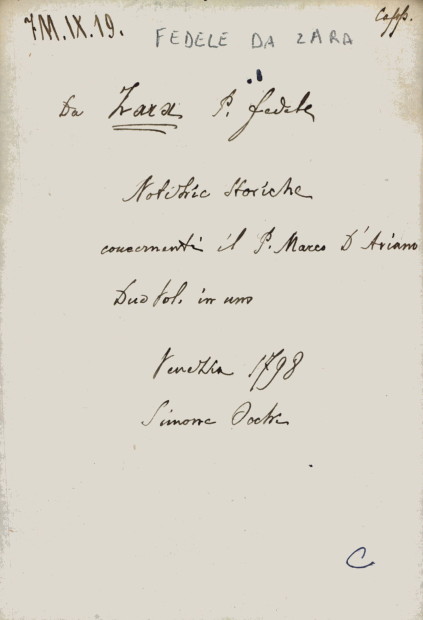 7M.IX.19.
Capp.
FEDELE DA ZARA
Da Zara P. Fedele
Notizie storiche
concernenti il P. Marco D'Aviano
Due Vol. in uno
Venezia 1798
Simone
C